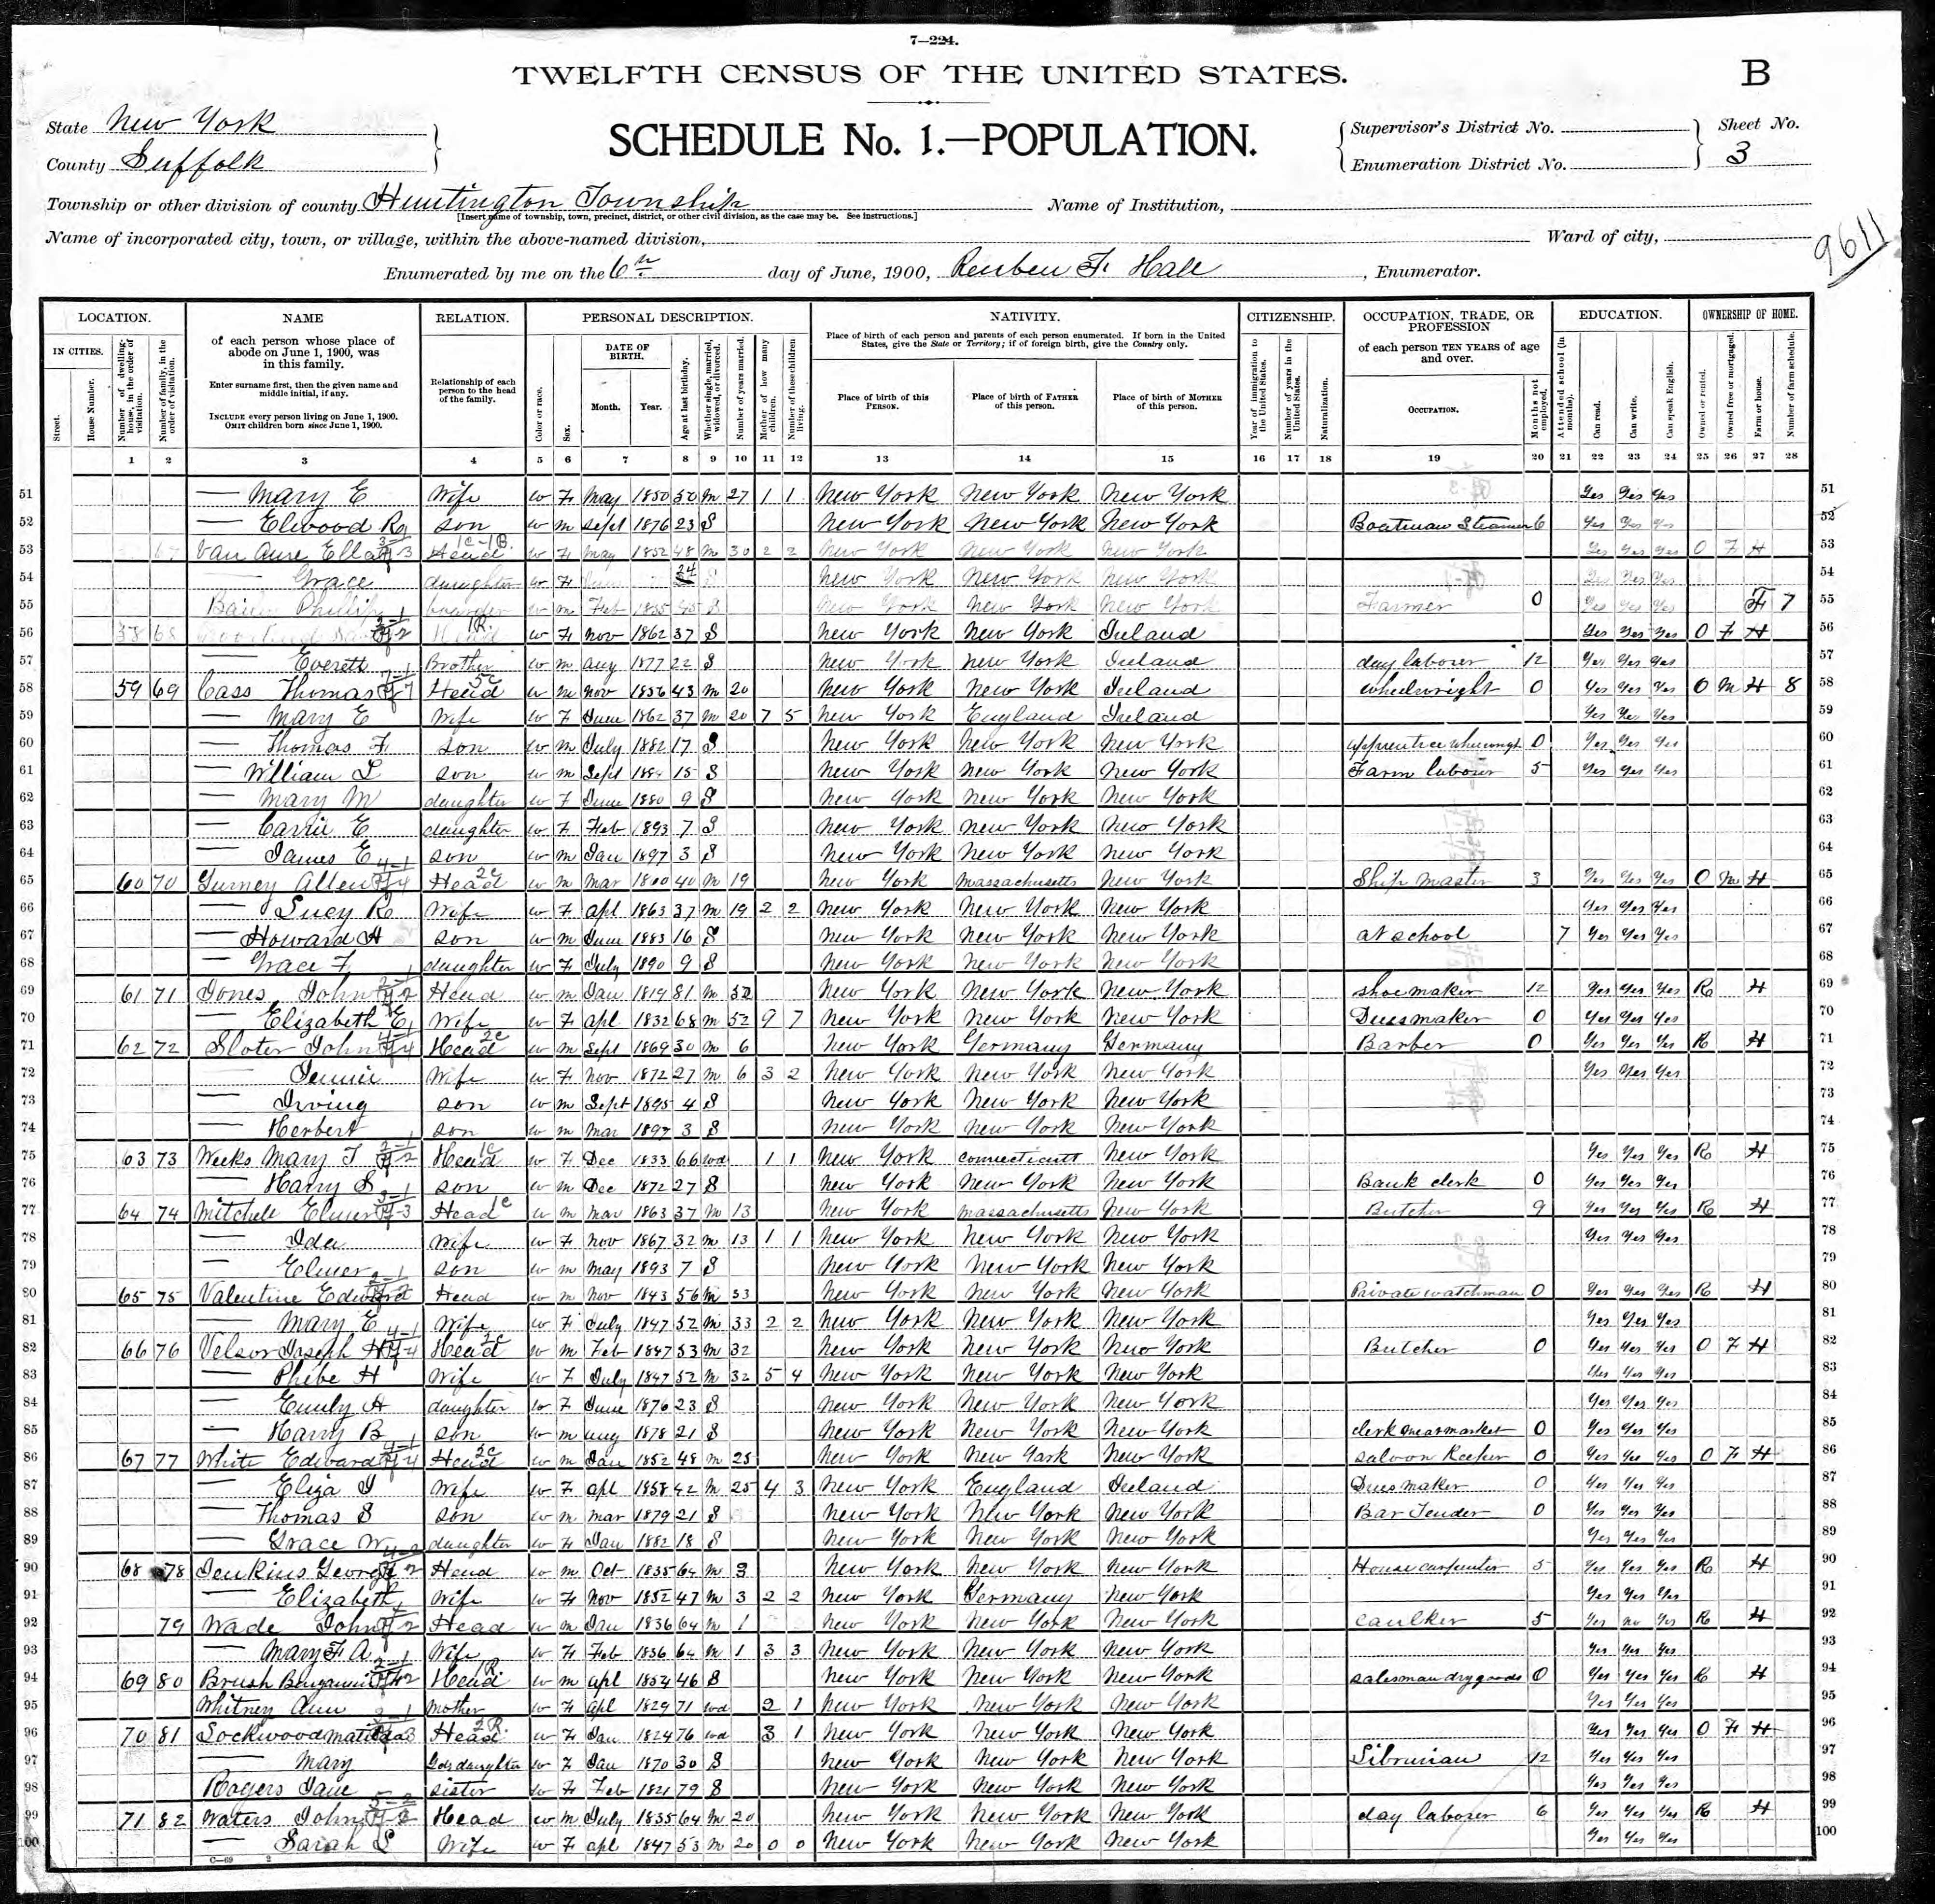 7—224.
TWELFTH CENSUS OF THE UNITED STATES.
B
State New York
County Suffolk
SCHEDULE No. 1.—POPULATION.
Supervisor's District No.
Enumeration District No.
Sheet No.
3
Township or other division of county Huntington Township
[Insert name of township, town, precinct, district, or other civil division, as the case may be. See instructions.]
Name of Institution,
Name of incorporated city, town, or village, within the above-named division,
Ward of city,
9611
Enumerated by me on the 6th day of June, 1900, Reuben F. Hall, Enumerator.
LOCATION. NAME RELATION. PERSONAL DESCRIPTION. NATIVITY. CITIZENSHIP. OCCUPATION, TRADE, OR PROFESSION EDUCATION. OWNERSHIP OF HOME.
IN CITIES.
Street.
House Number.
Number of dwelling-house, in the order of visitation.
Number of family, in the order of visitation.
of each person whose place of abode on June 1, 1900, was in this family.
Enter surname first, then the given name and middle initial, if any.
INCLUDE every person living on June 1, 1900.
OMIT children born since June 1, 1900.
Relationship of each person to the head of the family.
Color or race.
Sex.
DATE OF BIRTH.
Month. Year.
Age at last birthday.
Whether single, married, widowed, or divorced.
Number of years married.
Mother of how many children.
Number of these children living.
Place of birth of each person and parents of each person enumerated. If born in the United States, give the State or Territory; if of foreign birth, give the Country only.
Place of birth of this PERSON.
Place of birth of FATHER of this person.
Place of birth of MOTHER of this person.
Year of immigration to the United States.
Number of years in the United States.
Naturalization.
of each person TEN YEARS of age and over.
OCCUPATION.
Months not employed.
Attended school (in months).
Can read.
Can write.
Can speak English.
Owned or rented.
Owned free or mortgaged.
Farm or house.
Number of farm schedule.
1 2 3 4 5 6 7 8 9 10 11 12 13 14 15 16 17 18 19 20 21 22 23 24 25 26 27 28
51 — Mary E Wife W F May 1850 50 M 27 1 1 New York New York New York Yes Yes Yes 51
52 — Elwood R son W M Sept 1876 23 S New York New York New York Boatman Steamer 6 Yes Yes Yes 52
53 67 Van Aure Ella Head W F May 1852 48 M 30 2 2 New York New York New York Yes Yes Yes O F H 53
54 — Grace daughter W F 24 S New York New York New York Yes Yes Yes 54
55 Phillip boarder W M Feb 1855 45 S New York New York New York Farmer 0 Yes Yes Yes F 7 55
56 58 68 Head W F Nov 1862 37 S New York New York Ireland Yes Yes Yes O F H 56
57 — Everett Brother W M Aug 1877 22 S New York New York Ireland day laborer 12 Yes Yes Yes 57
58 59 69 Cass Thomas Head W M Nov 1856 43 M 20 New York New York Ireland wheelwright 0 Yes Yes Yes O M H 8 58
59 — Mary E Wife W F June 1862 37 M 20 7 5 New York England Ireland Yes Yes Yes 59
60 — Thomas F son W M July 1882 17 S New York New York New York apprentice 0 Yes Yes Yes 60
61 — William L son W M Sept 1884 15 S New York New York New York Farm laborer 5 Yes Yes Yes 61
62 — Mary M daughter W F June 9 S New York New York New York 62
63 — Carrie E daughter W F Feb 1893 7 S New York New York New York 63
64 — James E son W M Jan 1897 3 S New York New York New York 64
65 60 70 Gurney Allen Head W M Mar 1860 40 M 19 New York Massachusetts New York Ship master 3 Yes Yes Yes O M H 65
66 — Lucy R Wife W F Apl 1863 37 M 19 2 2 New York New York New York Yes Yes Yes 66
67 — Howard A son W M June 1883 16 S New York New York New York at school 7 Yes Yes Yes 67
68 — Grace F daughter W F July 1890 9 S New York New York New York 68
69 61 71 Jones John Head W M Jan 1819 81 M 52 New York New York New York shoemaker 12 Yes Yes Yes R H 69
70 — Elizabeth E Wife W F Apl 1832 68 M 52 9 7 New York New York New York Dressmaker 0 Yes Yes Yes 70
71 62 72 Sloter John Head W M Sept 1869 30 M 6 New York Germany Germany Barber 0 Yes Yes Yes R H 71
72 — Jennie Wife W F Nov 1872 27 M 6 3 2 New York New York New York Yes Yes Yes 72
73 — Irving son W M Sept 1895 4 S New York New York New York 73
74 — Herbert son W M Mar 1897 3 S New York New York New York 74
75 63 73 Weeks Mary T Head W F Dec 1833 66 Wd 1 1 New York Connecticutt New York Yes Yes Yes R H 75
76 — Harry S son W M Dec 1872 27 S New York New York New York Bank clerk 0 Yes Yes Yes 76
77 64 74 Mitchell Elmer Head W M Mar 1863 37 M 13 New York Massachusetts New York Butcher 9 Yes Yes Yes R H 77
78 — Ida Wife W F Nov 1867 32 M 13 1 1 New York New York New York Yes Yes Yes 78
79 — Elmer son W M May 1893 7 S New York New York New York 79
80 65 75 Valentine Edward Head W M Nov 1843 56 M 33 New York New York New York Private watchman 0 Yes Yes Yes R H 80
81 — Mary E Wife W F July 1847 52 M 33 2 2 New York New York New York Yes Yes Yes 81
82 66 76 Velsor Joseph H Head W M Feb 1847 53 M 32 New York New York New York Butcher 0 Yes Yes Yes O F H 82
83 — Phebe H Wife W F July 1847 52 M 32 5 4 New York New York New York Yes Yes Yes 83
84 — Emily A daughter W F June 1876 23 S New York New York New York Yes Yes Yes 84
85 — Harry B son W M Aug 1878 21 S New York New York New York clerk meat market 0 Yes Yes Yes 85
86 67 77 White Edward Head W M Jan 1852 48 M 25 New York New York New York saloon Keeper 0 Yes Yes Yes O F H 86
87 — Eliza J Wife W F Apl 1858 42 M 25 4 3 New York England Ireland Dressmaker 0 Yes Yes Yes 87
88 — Thomas S son W M Mar 1879 21 S New York New York New York Bar Tender 0 Yes Yes Yes 88
89 — Grace W daughter W F Jan 1882 18 S New York New York New York Yes Yes Yes 89
90 68 78 Jenkins George Head W M Oct 1835 64 M 3 New York New York New York House carpenter 5 Yes Yes Yes R H 90
91 — Elizabeth Wife W F Nov 1852 47 M 3 2 2 New York Germany New York Yes Yes Yes 91
92 79 Wade John Head W M Jan 1836 64 M 1 New York New York New York caulker 5 Yes no Yes R H 92
93 — Mary F A Wife W F Feb 1836 64 M 1 3 3 New York New York New York Yes Yes Yes 93
94 69 80 Brush Benjamin Head W M Apl 1854 46 S New York New York New York salesman dry goods 0 Yes Yes Yes R H 94
95 Whitney Ann Mother W F Apl 1829 71 Wd 2 1 New York New York New York Yes Yes Yes 95
96 70 81 Lockwood Matilda Head W F Jan 1824 76 Wd 3 1 New York New York New York Yes Yes Yes O F H 96
97 — Mary daughter W F Jan 1870 30 S New York New York New York Librarian 12 Yes Yes Yes 97
98 Rogers Jane sister W F Feb 1821 79 S New York New York New York Yes Yes Yes 98
99 71 82 Waters John Head W M July 1835 64 M 20 New York New York New York day laborer 6 Yes Yes Yes R H 99
100 — Sarah L Wife W F Apl 1847 53 M 20 0 0 New York New York New York Yes Yes Yes 100
C—69 2